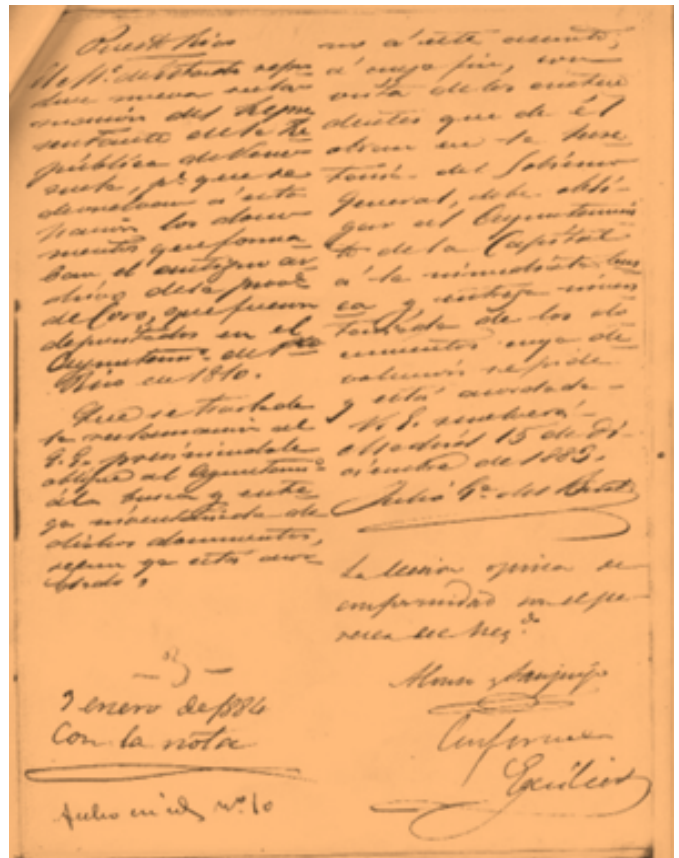 Puerto Rico
El Mº. de Estado repro-
duce nueva recla-
mación del Repre
sentante de la Re
pública de Vene-
zuela, pª. que se
devuelvan á esta
nación los docu-
mentos que forma-
ban el antiguo ar
chivo de la provª
de Coro, que fueron
depositados en el
Ayuntamº. de Pto
Rico en 1810.
Que se traslade
la reclamación al
G. G. previniendole
obligue al Ayuntamº
á la busca y entre
ga de
dichos documentos,
segun ya está acor
dado.
- 3 -
9 enero de 1884
Con la nota
nº. 10
mo á este asunto,
á cuyo fin, con
vista de los antece
dentes que de él
obran en la Secre
taría del Gobierno
General, debe obli-
gar al Ayuntamien
to de la Capital
á la inmediata bus
ca y entrega
de los do
cumentos cuya de
volucion se pide
y está acordada-
V. E. resolverá-
Madrid 15 de Di-
ciembre de 1883.
Julio Gª. del
La Seccion opina de
conformidad con el pa-
recer del Negdo.
Alonso y Sanjurjo
Conforme